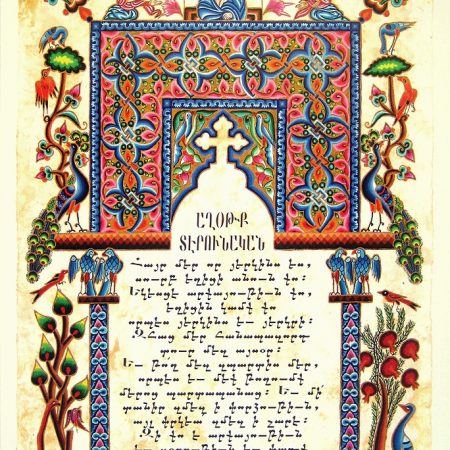 ԱՂՕԹՔ
ՏԷՐՈՒՆԱԿԱՆ
Հայր մեր որ յերկինս ես,
սուրբ եղիցի անուն քո.
Եկեսցէ արքայութիւն քո,
եղիցին կամք քո
որպէս յերկինս եւ յերկրի:
Զհաց մեր հանապազորդ
տուր մեզ այսօր:
Եւ թող մեզ զպարտիս մեր,
որպէս եւ մեք թողումք
մերոց պարտապանաց: Եւ մի
տանիր զմեզ ի փորձութիւն,
այլ փրկեա զմեզ ի չարէ:
Զի քո է արքայութիւն